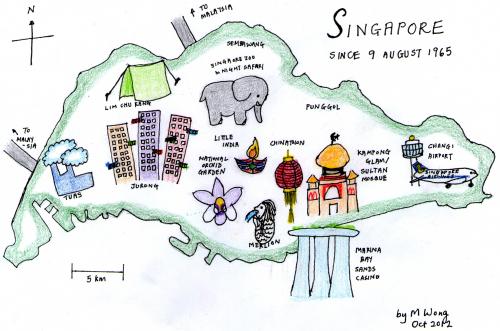 N
↗ TO
MALAYSIA
SINGAPORE
SINCE 9 AUGUST 1965
SEMBAWANG
SINGAPORE ZOO
N NIGHT SAFARI
LIM CHU KANG
PUNGGOL
TO
MALAY
-SIA
LITTLE
INDIA
CHINATOWN
KAMPONG
GLAM/
SULTAN
MOSQUE
CHANGI
AIRPORT
SINGAPORE
AIRLINES
NATIONAL
ORCHID
GARDEN
TUAS
JURONG
MERLION
MARINA
BAY
SANDS
CASINO
5 km
by M Wong
Oct 2012